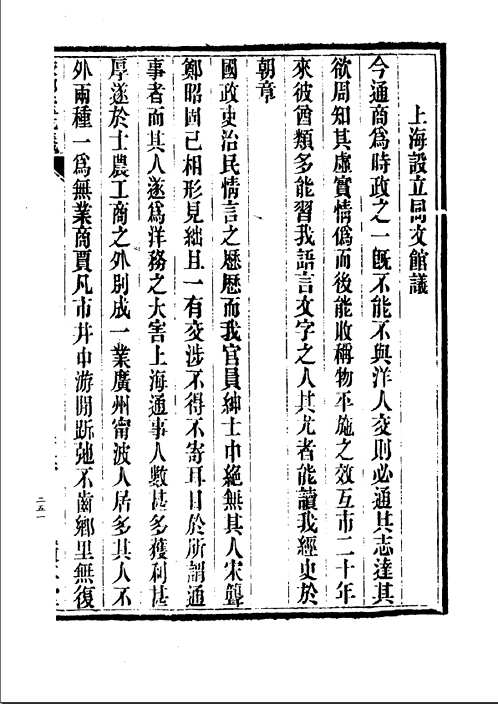 上海設立同文館議
今通商爲時政之一旣不能不與洋人交則必通其志達其
欲周知其虛實情僞而後能收稱物平施之效互市二十年
來彼酋類多能習我語言文字之人其尤者能讀我經史於
朝章
國政吏治民情言之歷歷而我官員紳士中絶無其人宋聾
鄭昭固已相形見絀且一有交涉不得不寄耳目於所謂通
事者而其人遂爲洋務之大害上海通事人數甚多獲利甚
厚遂於士農工商之外別成一業廣州甯波人居多其人不
外兩種一爲無業商賈凡市井中游閒跅弛不齒鄉里無復
二五一